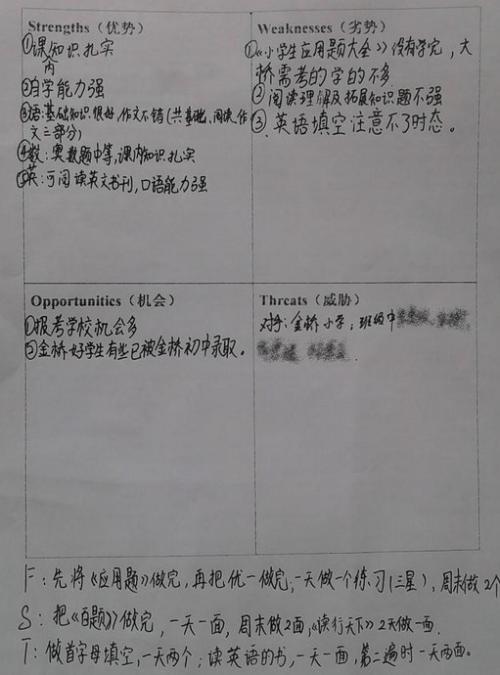 Strengths（优势）
①课内知识扎实
②自学能力强
③语：基础知识很好，作文不错（共基础、阅读、作
文三部分）
④数：奥数题中等，课内知识扎实
⑤英：可阅读英文书刊，口语能力强
Weaknesses（劣势）
①《小学生应用题大全》没有学完，大
桥需考的学的不多
②阅读理解及拓展知识题不强
③英语填空注意不了时态。
Opportunities（机会）
①报考学校机会多
②金桥好学生有些已被金桥初中录取。
Threats（威胁）
对手：金桥小学；班级中
F：先将《应用题》做完，再把优一做完，一天做一个练习（三星），周末做2个
S：把《百题》做完，一天一面，周末做2面，《读行天下》2天做一面.
T：做首字母填空，一天两个；读英语的书，一天一面，第二遍时一天两面。